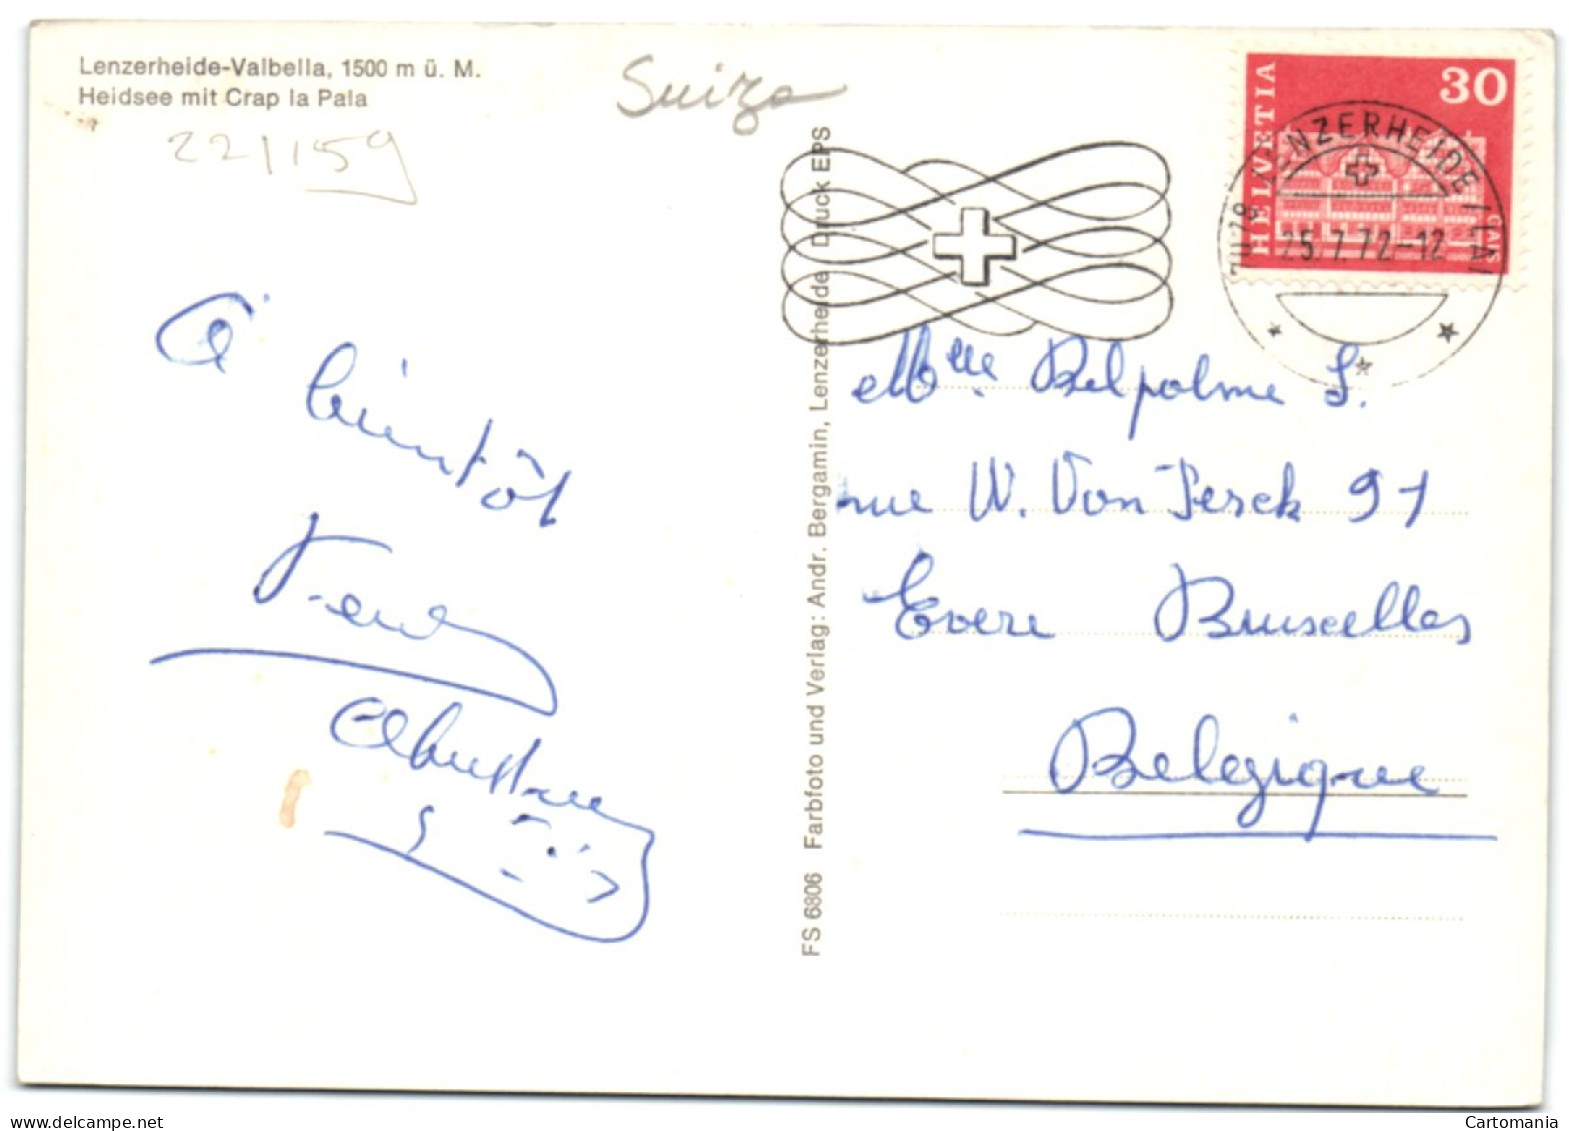 Lenzerheide-Valbella, 1500 m ü. M.
Heidsee mit Crap la Pala
22/159
Suiza
HELVETIA
30
7078 LENZERHEIDE / LAI
25.7.72-12
à
bientôt
Melle Delpalme S.
rue W. Van Perck 91
Evere Bruxelles
Belgique
FS 6806 Farbfoto und Verlag: Andr. Bergamin, Lenzerheide Druck EPS
delcampe.net
Cartomania